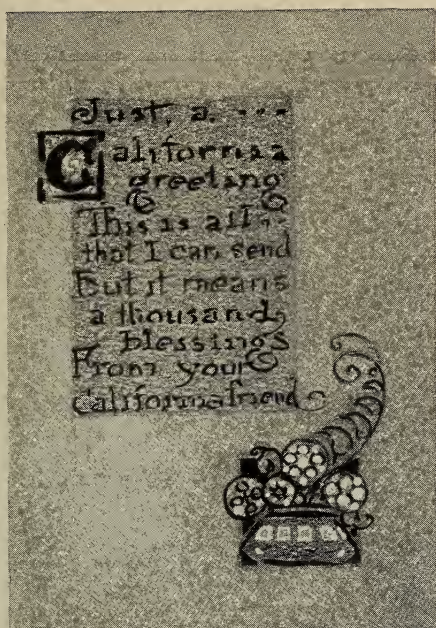 Just a ...
California
greeting
This is all
that I can send
But it means
a thousand
blessings
From your
California friend